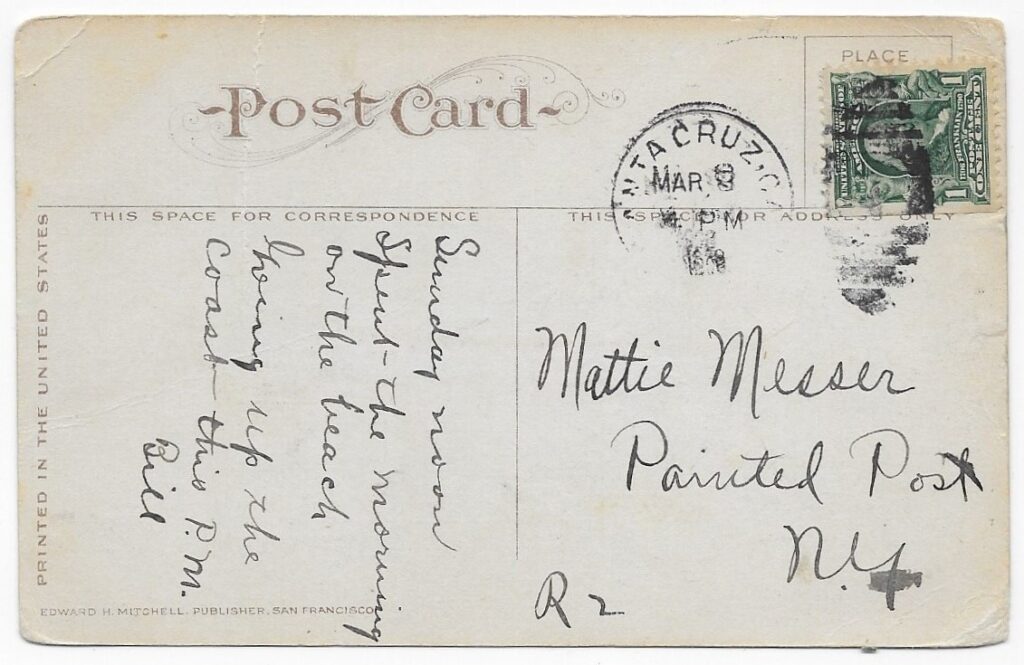 Post Card
PLACE
THIS SPACE FOR CORRESPONDENCE
THIS SPACE FOR ADDRESS ONLY
NTA CRUZ, C
MAR 8
PM
1
1
PRINTED IN THE UNITED STATES
Sunday noon
Spent the morning
on the beach
Going up the
coast this P.M.
Bill
Mattie Messer
Painted Post
N.Y
R 2
EDWARD H. MITCHELL, PUBLISHER, SAN FRANCISCO